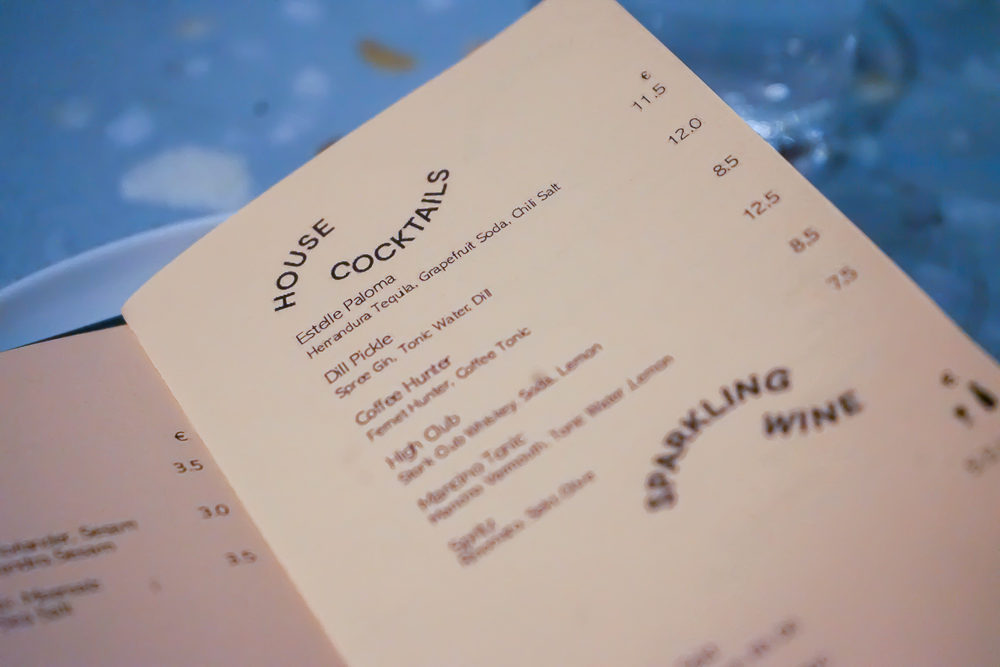 HOUSE
COCKTAILS
€
Estelle Paloma 11.5
Herrandura Tequila, Grapefruit Soda, Chili Salt
Dill Pickle 12.0
Spree Gin, Tonic Water, Dill
Coffee Hunter 8.5
Fernet Hunter, Coffee Tonic
High Club 12.5
Stork Club Whiskey, Soda, Lemon
Mancino Tonic 8.5
Mancino Vermouth, Tonic Water, Lemon
Spritz 7.5
SPARKLING
WINE
€
€
3.5
3.0
3.5